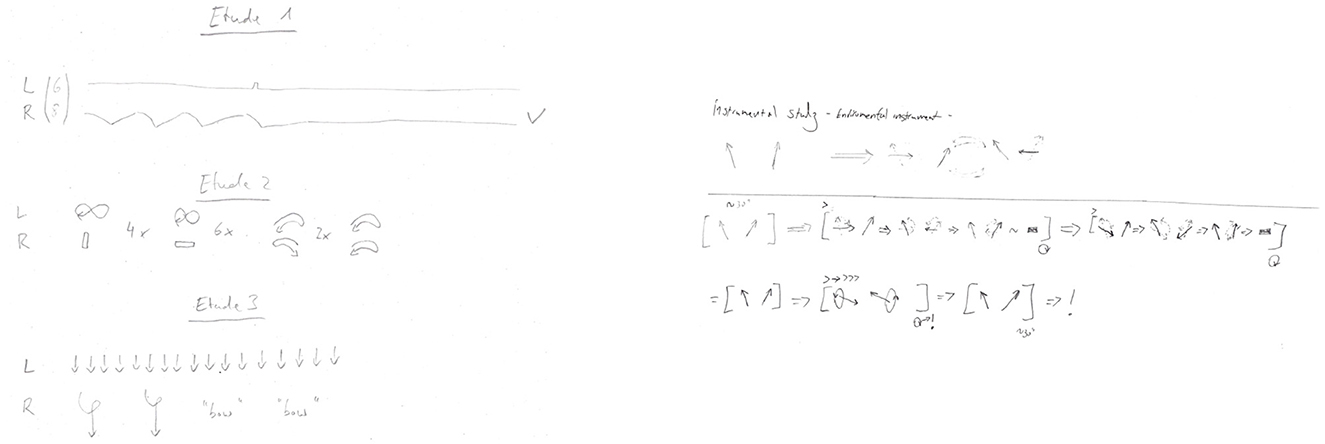 Etude 1
L 6
R 5
Etude 2
L
R 4x 6x 2x
Etude 3
L
R "bow" "bow"
Instrumental study - Environmental instrument -
~30°
~30°